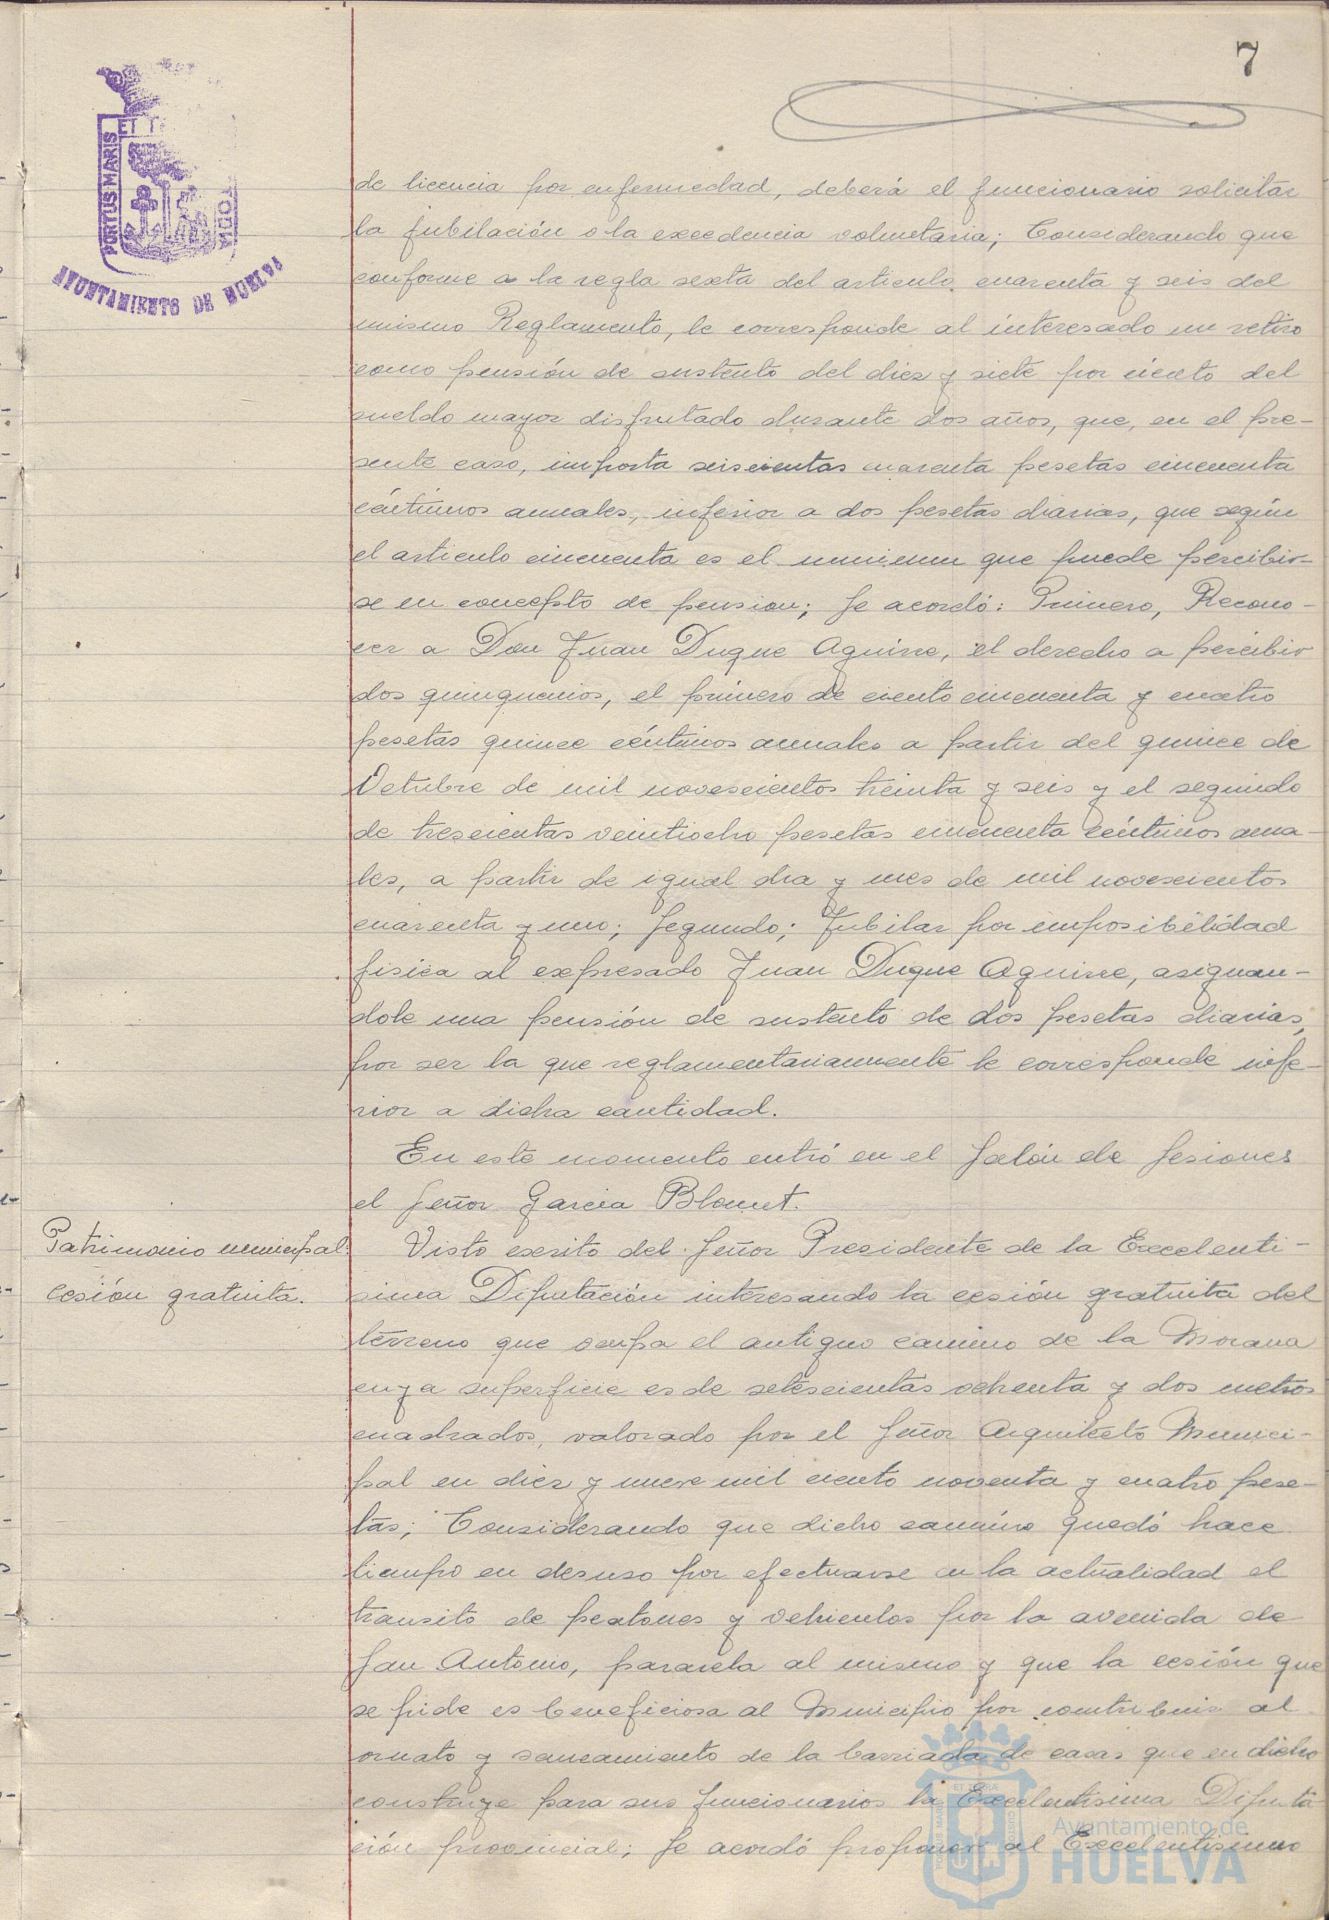 7
PORTUS MARIS
ET T
AYUNTAMIENTO DE HUELVA
de licencia por enfermedad, deberá el funcionario solicitar
la jubilación o la excedencia voluntaria; Considerando que
conforme a la regla sexta del articulo cuarenta y seis del
mismo Reglamento, le corresponde al interesado un retiro
como pensión de sustento del diez y siete por ciento del
sueldo mayor disfrutado durante dos años, que, en el pre-
sente caso, importa seiscientas cuarenta pesetas cincuenta
céntimos anuales, inferior a dos pesetas diarias, que según
el articulo cincuenta es el minimum que puede percibir-
se en concepto de pension; Se acordó: Primero, Recono-
cer a Don Juan Duque Aguirre, el derecho a percibir
dos quinquenios, el primero de ciento cincuenta y cuatro
pesetas quince céntimos anuales a partir del quince de
Octubre de mil novescientos treinta y seis y el segundo
de trescientas veintiocho pesetas cincuenta céntimos anua-
les, a partir de igual dia y mes de mil novescientos
cuarenta y uno; Segundo; Jubilar por imposibilidad
fisica al expresado Juan Duque Aguirre, asignan-
dole una pensión de sustento de dos pesetas diarias,
por ser la que reglamentariamente le corresponde infe-
rior a dicha cantidad.
En este momento entró en el Salón de Sesiones
el Señor Garcia Blomet.
Patrimonio municipal:
cesión gratuita.
Visto escrito del Señor Presidente de la Excelenti-
sima Diputación interesando la cesión gratuita del
terreno que ocupa el antiguo camino de la Morana
cuya superficie es de setescientas ochenta y dos metros
cuadrados, valorado por el Señor Arquitecto Munici-
pal en diez y nueve mil ciento noventa y cuatro pese-
tas; Considerando que dicho camino quedó hace
tiempo en desuso por efectuarse en la actualidad el
transito de peatones y vehiculos por la avenida de
San Antonio, pararela al mismo y que la cesión que
se pide es beneficiosa al Municipio por contribuir al
ornato y saneamiento de la barriada de casas que en dicho
construye para sus funcionarios la Excelentisima Diputa-
ción provincial; Se acordó proponer al Excelentisimo
Ayuntamiento de
HUELVA